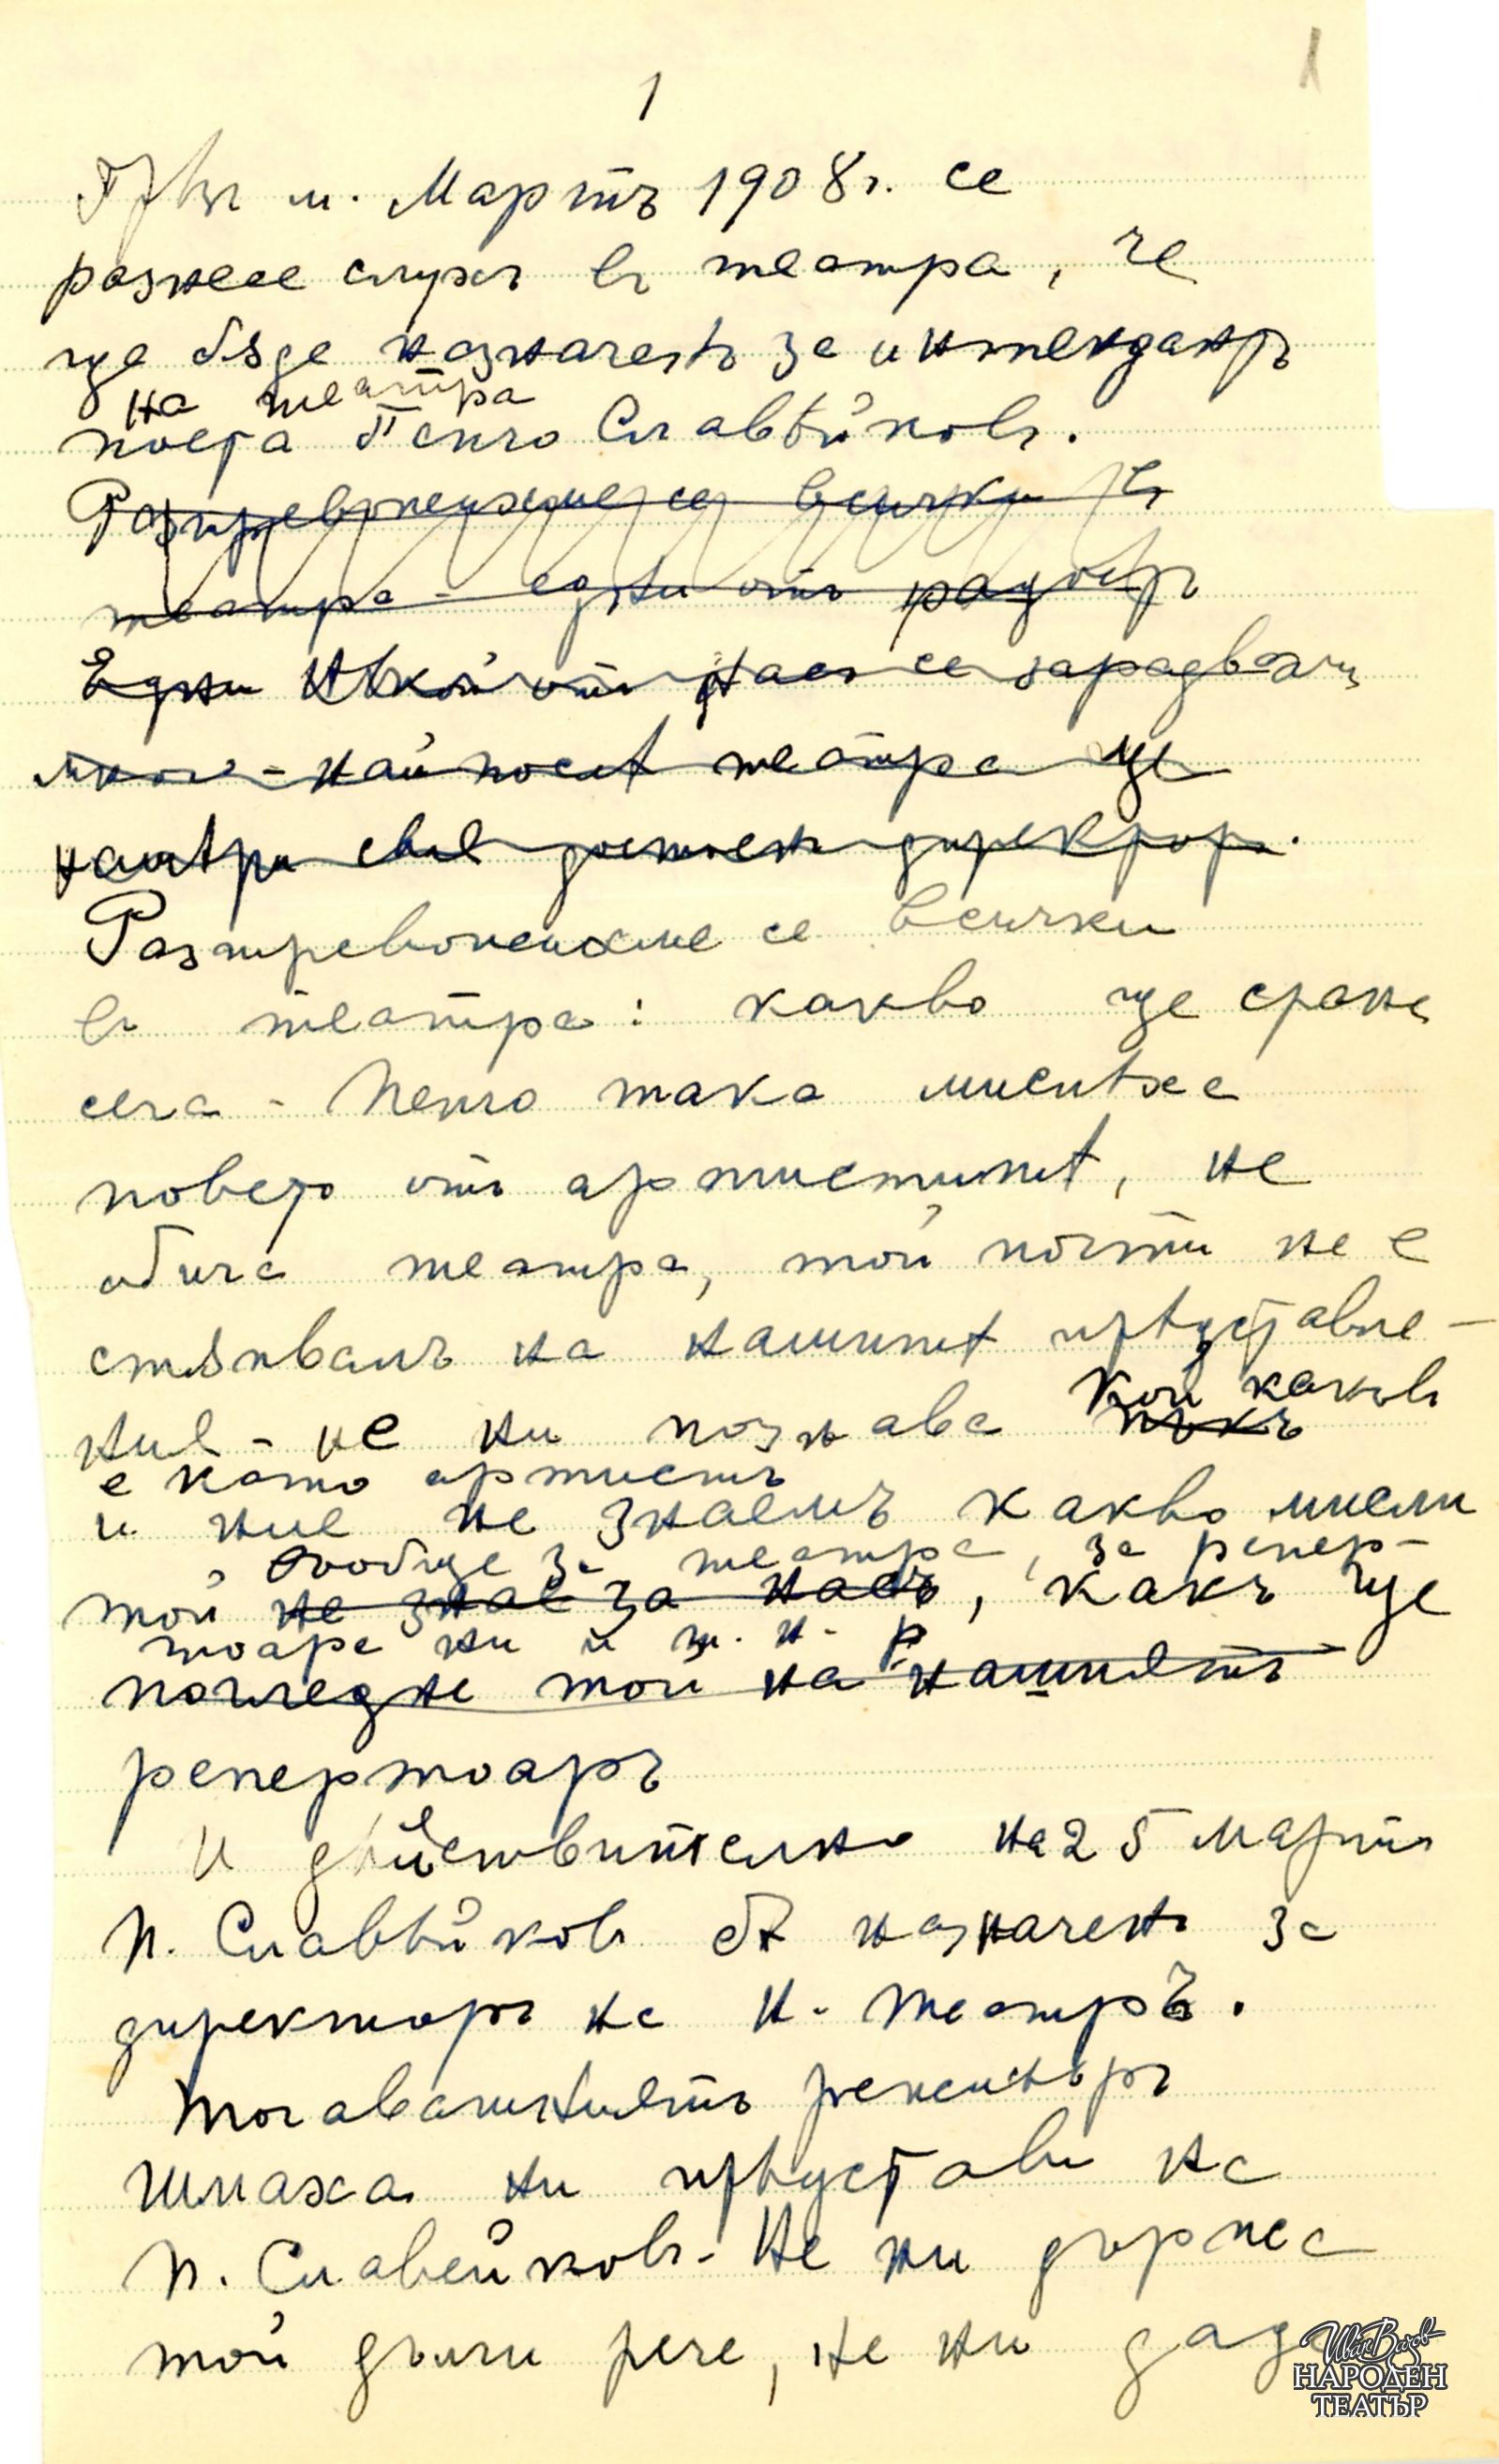 1
1
Презъ м. Мартъ 1908 г. се
разнесе слухъ въ театра, че
ще бѫде назначенъ за интендантъ
на театра
поета Пенчо Славѣйковъ.
Разтревожихме се всички въ
театра - едни отъ радость
Едни Нѣкои отъ насъ се зарадваха
най после театра ще
намѣри своя достоенъ директоръ.
Разтревожихме се всички
въ театра: какво ще стане
сега - Пенчо така мислѣха
повечо отъ артистите, не
обича театра, той почти не е
стѫпвалъ на нашитѣ прѣдставле-
ния - не ни познава кой какъвъ
е като артистъ
и ние не знаемъ какво мисли
вообще за театра, за репер-
той не знае за насъ, какъ ще
тоара ни и т. н.
погледне той на нашиятъ
репертоаръ
И действително на 25 мартъ
П. Славѣйковъ бѣ назначенъ за
директоръ на Н. театръ.
Тогавашниятъ режисьоръ
Шмаха ни прѣдстави на
П. Славейковъ. Не ни държа
той дълги рече, не ни даде
Иван Вазов
НАРОДЕН
ТЕАТЪР